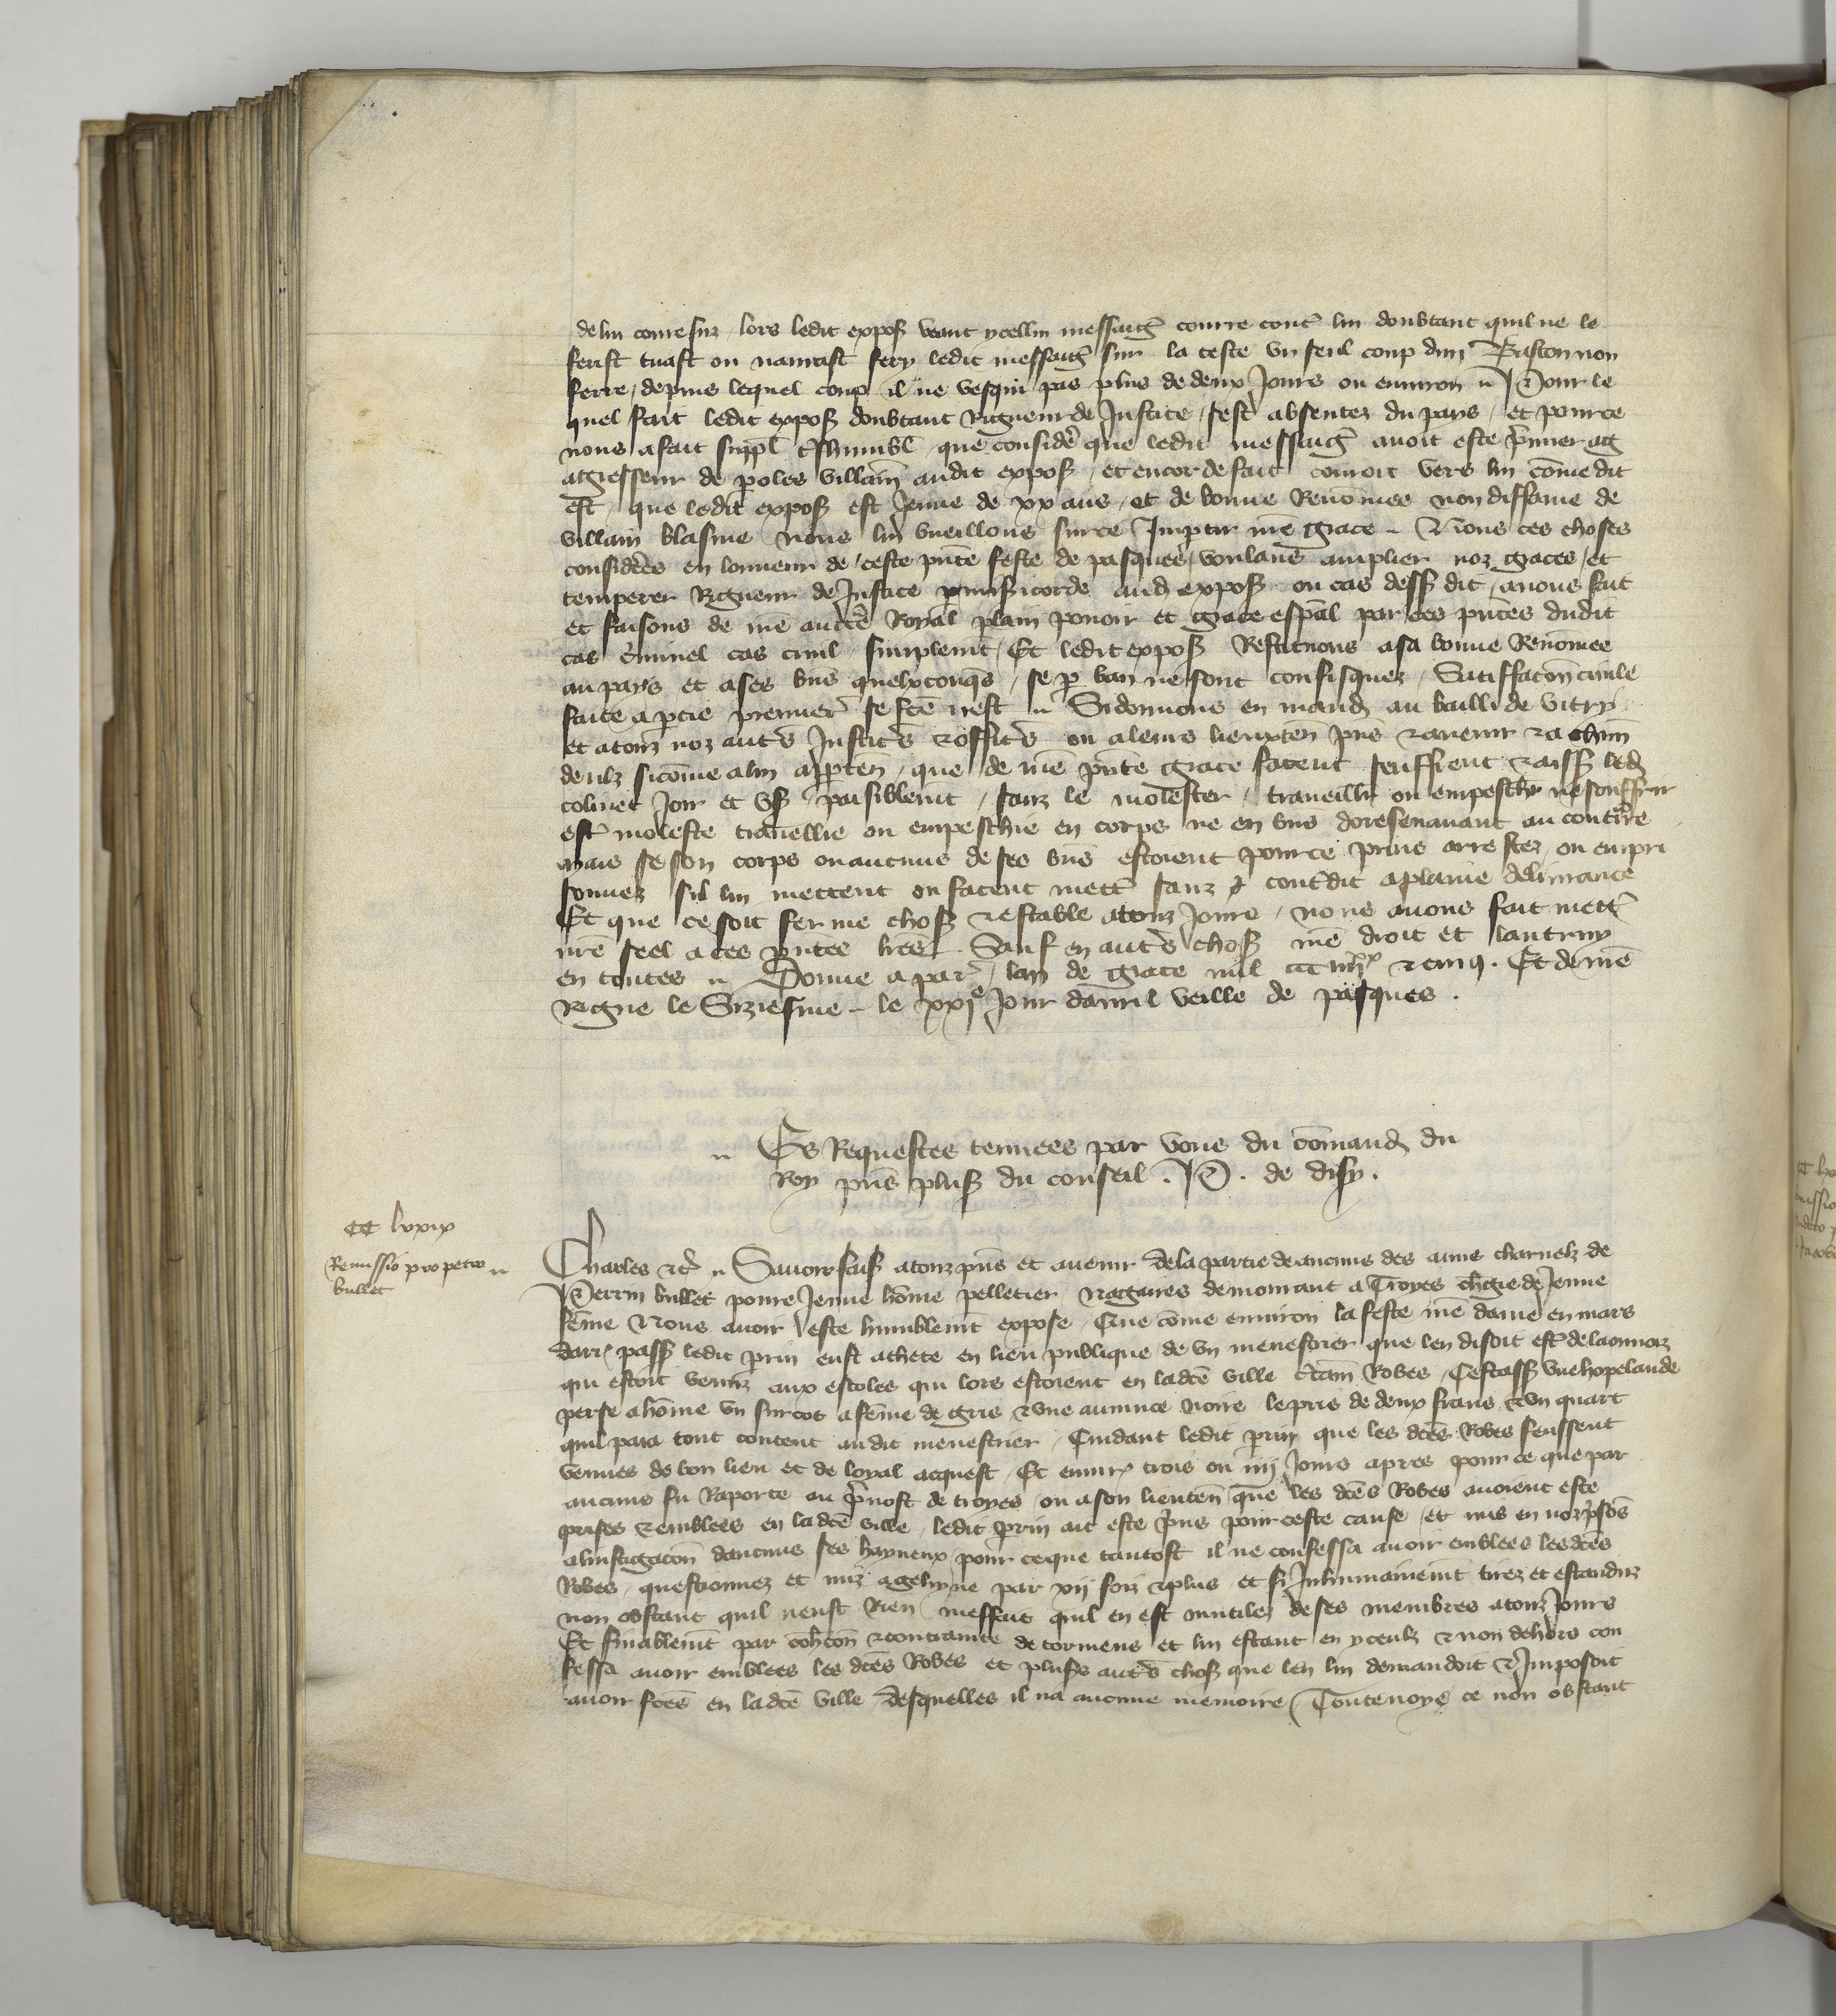 de lui comesur lors ledit expos veant ycellui messaig courre cont lui doubtant quil ne le
ferist tuast ou navrast fery ledit messaig sur la teste un seul coup dun Baston non
ferre / depuis lequel coup il ne vesqui pas plus de deux Jours ou environ Pour le
quel fait ledit expos doubtant Rigueur de Justice sest absentez du pays et pource
nous a fait suppl humbl que considere que ledit messaig avoit este primer ag
agresseur de poles villain audit expos et encor de fait couroit vers lui come dit
est que ledit expos est Jeune de xx ans et de bonne Renomee non diffame de
villain blasme Nous lui vueillons sur ce Impartir nre grace Nous ces choses
considerees en lonneur de ceste pnte feste de pasques voulans amplier noz graces et
temperer Rigueur de Justice misericorde aud expos ou cas dess dit avons fait
et faisons de nre auctte Royal plain povoir et grace espal par ces pntes dudit
cas criminel cas civil simplemt Et ledit expos Restituons a sa bonne Renomee
au pays et a ses biens quelxconqs se p ban ne sont confisquez Satiffacon civile
faite a ptie premier se fce nest Si donnons en mand au bailli de Vitry
et a touz noz auts Justics & offics ou a leurs lieuxten pns & avenir & a chun
deulz sicome a lui apprten que de nre pnte grace facent seuffrent & laiss led
colinet Joir et us paisiblemt sanz le molester traveillr ou empescher ne souffrir
est moleste travellie ou empeschie en corps ne en bns doresenavant au contre
mais se son corps ou aucuns de ses bns estoient pour ce prins arrestez ou empri
sonnez sil lui mettent ou facent mett sanz contdit a plaine delivrance
Et que ce soit ferme chos & estable a touz Jours nous avons fait mett
nre seel a ces pntes lres Sauf en auts chos nre droit et lautruy
en toutes Donne a par lan de grace mil ccc iiijxx & cinq. Et de nre
Regne le Siziesme le xxje Jour davril veille de pasques.
Es Requestes tenues par vous du comand du
Roy pns plus du conseil. P. de disy.
cc lxxix
Remissio pro petro
bullet
Charles &c Savoir fais a touz pns et avenir De la partie de aucuns des amis charnelz de
Perrin bullet povre Jeune home pelletier Nagaires demourant a Troyes chgie de Jeune
feme Nous avoir este humblemt expose Que come environ la feste nre dame en mars
darr pass ledit prin eust achete en lieu publique de un menestrier que len disoit est de laonnoiz
qui estoit venuz aux escoles qui lors estoient en ladce ville ctain Robes Cestass une hopelande
perse a home un surcot a feme de gris & une aumuce noire le pris de deux frans & un quart
quil paia tout content au dit menestrier Cuidant ledit prin que les dces Robes feussent
venues de bon lieu et de loyal acquest Et envir trois ou iiij Jours apres pour ce que par
aucuns fu Raporte au prvost de troyes ou a son lieuten que les dces Robes avoient este
prises & emblees en ladce ville ledit prin ait este prins pour ceste cause et mis en noz prsos
a linstigacon daucuns ses hayneux pour ce que tantost il ne confessa avoir emblees les dces
Robes questionnez et miz a gehyne par xij foiz & plus et si Inhumainemt tirez et estanduz
non obstant quil neust Rien meffait quil en est mutilez de ses membres a touz Jours
Et finablemt par cohcon & contrainte de tormens et lui estant en yceulz & non dehors con
fessa avoir emblees les dces Robes et pluss auts chos que len lui demandoit & Imposoit
avoir fces en ladce ville desquelles il na aucune memoire Toutevoye ce non obstant